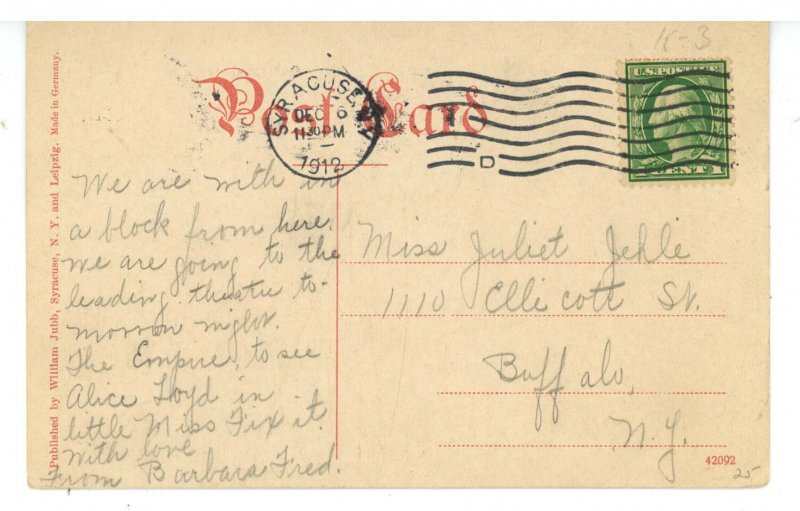 K-3
Post Card
SYRACUSE, N.Y.
DEC 6
11 30 PM
1912
D
U.S. POSTAGE
1 CENT 1
We are with in
a block from here.
we are going to the
leading theatre to-
morrow night.
The Empire, to see
Alice Loyd in
little Miss Fix it.
With love
From Barbara Fred.
Miss Juliet Jehle
1110 Ellicott St.
Buffalo,
N.Y.
Published by William Jubb, Syracuse, N. Y. and Leipzig. Made in Germany.
42092
25-